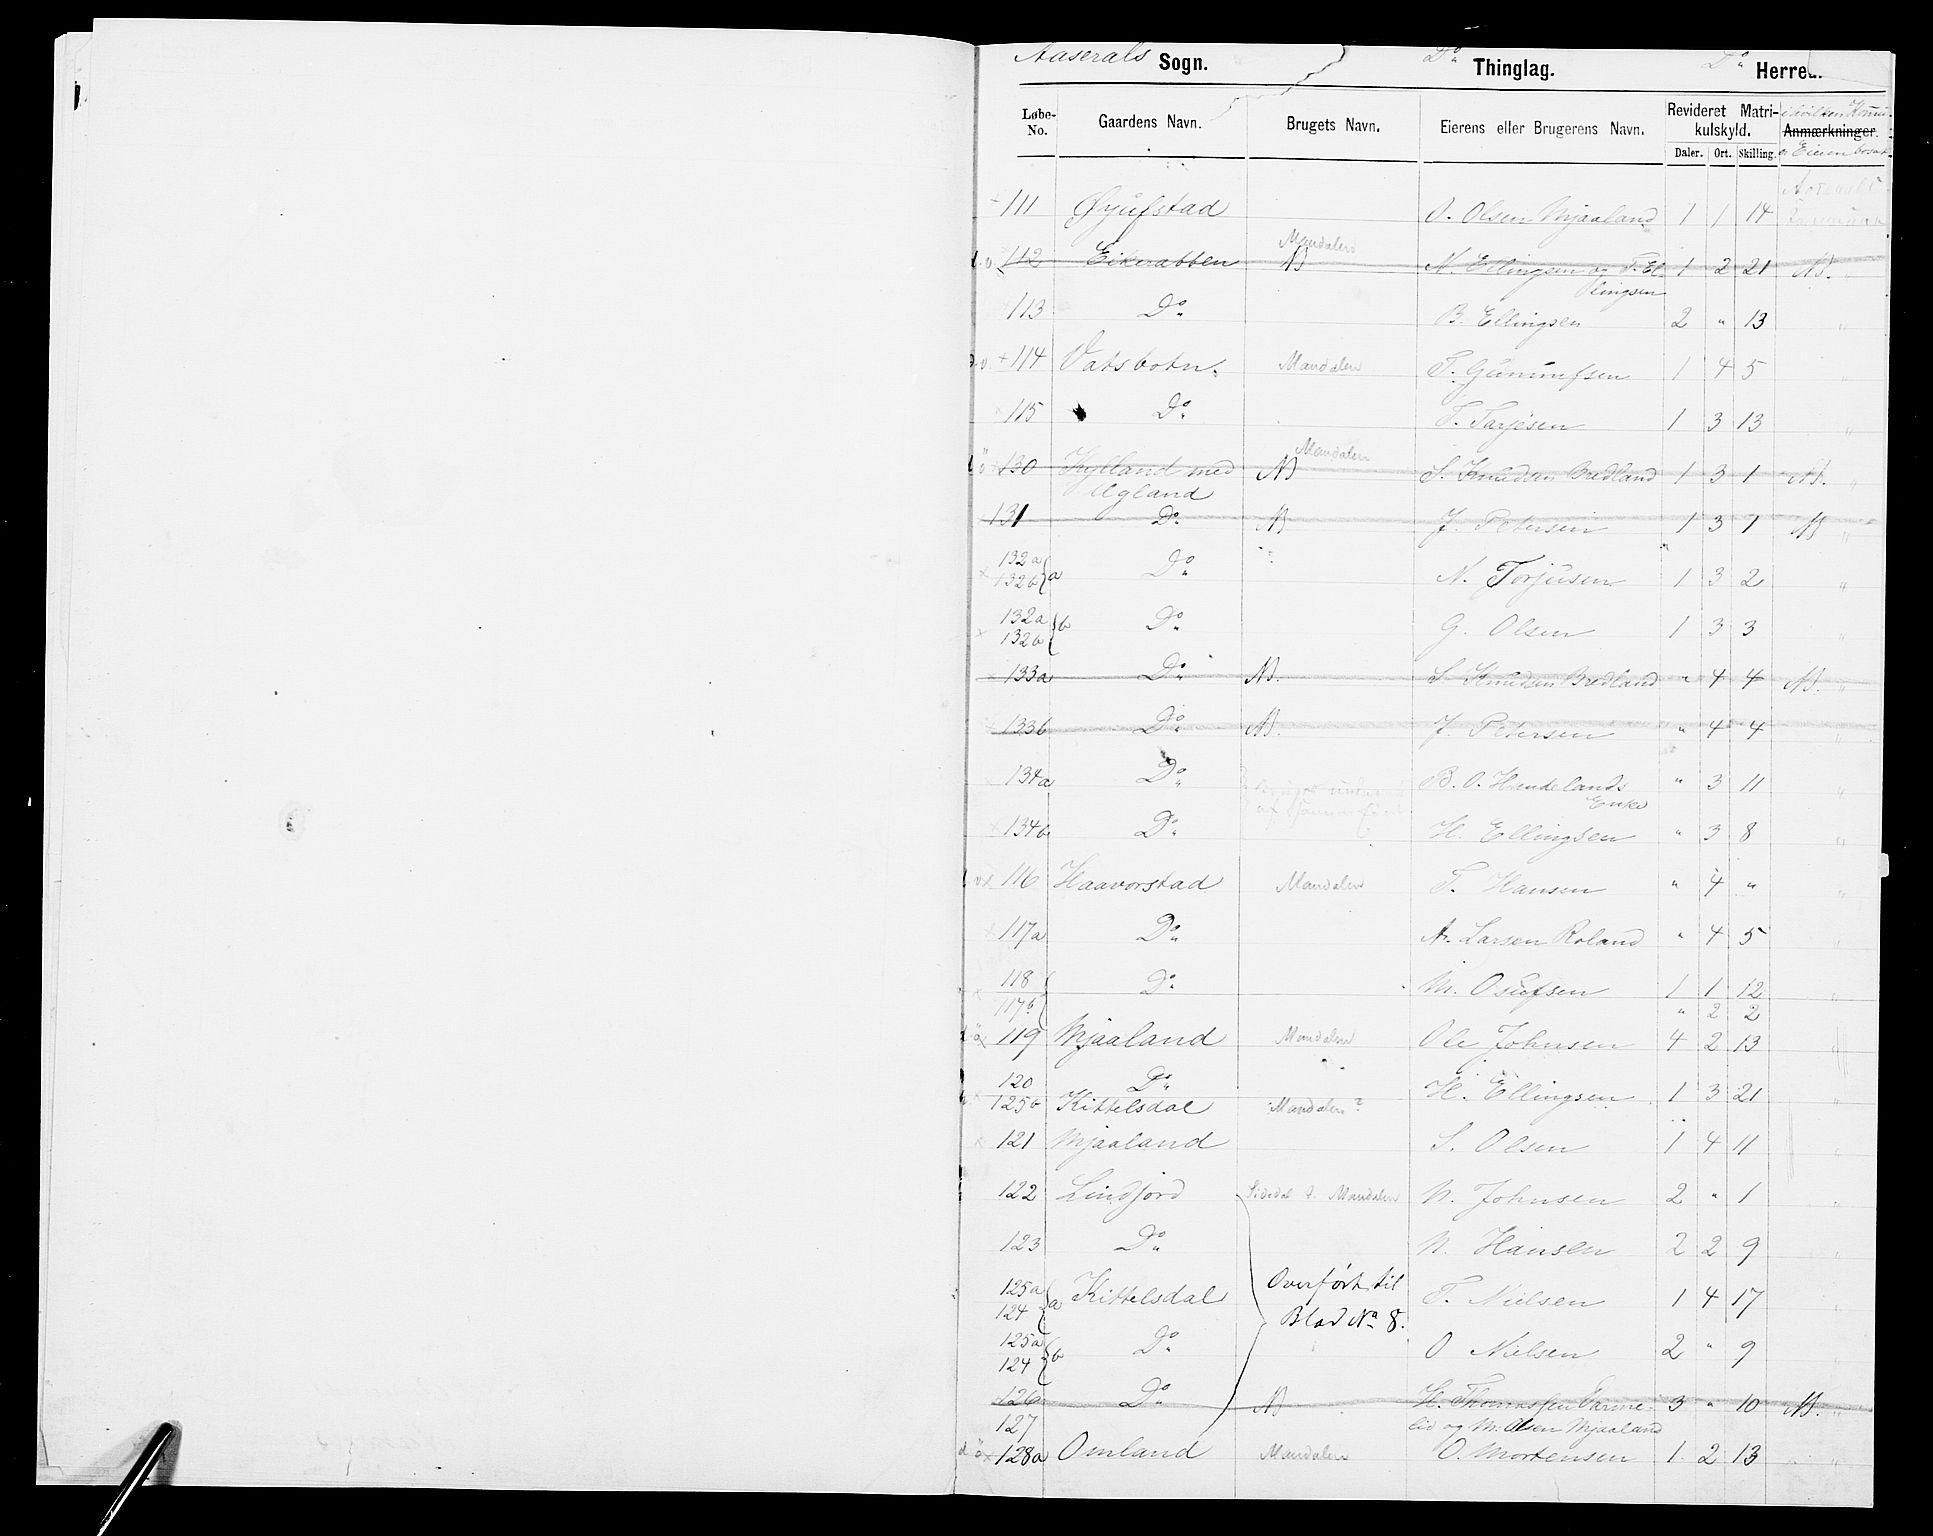 Aaserals Sogn. Do Thinglag. Do Herred.
Løbe-No. Gaardens Navn. Brugets Navn. Eierens eller Brugerens Navn. Revideret Matrikulskyld. i hvilken Anmærkninger. er Eieren bosat
Daler. Ort. Skilling.
111 O. Olsen Mjaaland 1 1 14
Mandalen
112 Eikerabben N N. Ellingsen og T. El- 1 2 21 N. "
lingsen
113 Do B. Ellingsen 2 " 13 "
+ 114 Vatsbotn. Mandalen T. 1 4 5 "
115 Do T. Tarjesen 1 3 13 "
Mandalen
130 Kylland med N S. Knudsen Bredland 1 3 1 N. "
Ugland
131 Do N J. Petersen 1 3 1 N "
132a 132b } a Do N. Torjusen 1 3 2 "
132a 132b } b Do G. Olsen 1 3 3 "
133a Do N. S. Knudsen Bredland " 4 4 N. "
133b Do N. J. Petersen " 4 4 "
134a Do B. O. Haudelands " 3 11 "
Enke
134b Do H. Ellingsen " 3 8 "
116 Haavorstad Mandalen T. Hansen " 4 " "
117a Do A. Larsen Roland " 4 5 "
118 Do M. Osufsen 1 1 12 "
117b " 2 2
119 Mjaaland Mandalen Ole Johnsen 4 2 13 "
120 Do H. Ellingsen 1 3 21 "
125b Kittelsdal Mandalen?
121 Mjaaland S. Olsen 1 4 11 "
122 Lindjord Sidedal t. Mandalen N. Johnsen 2 " 1 "
123 Do N. Hansen 2 2 9 "
125a 124 } a Kittelsdal Overført til T. Nielsen 1 4 17 "
Blad No 8.
125a 124 } b Do O Nielsen 2 " 9
126 Do N H. Thomassen 3 " 10 N. "
127 lid og M. Olsen Mjaaland
128a Omland Mandalen O. Mortensen 1 2 13 "